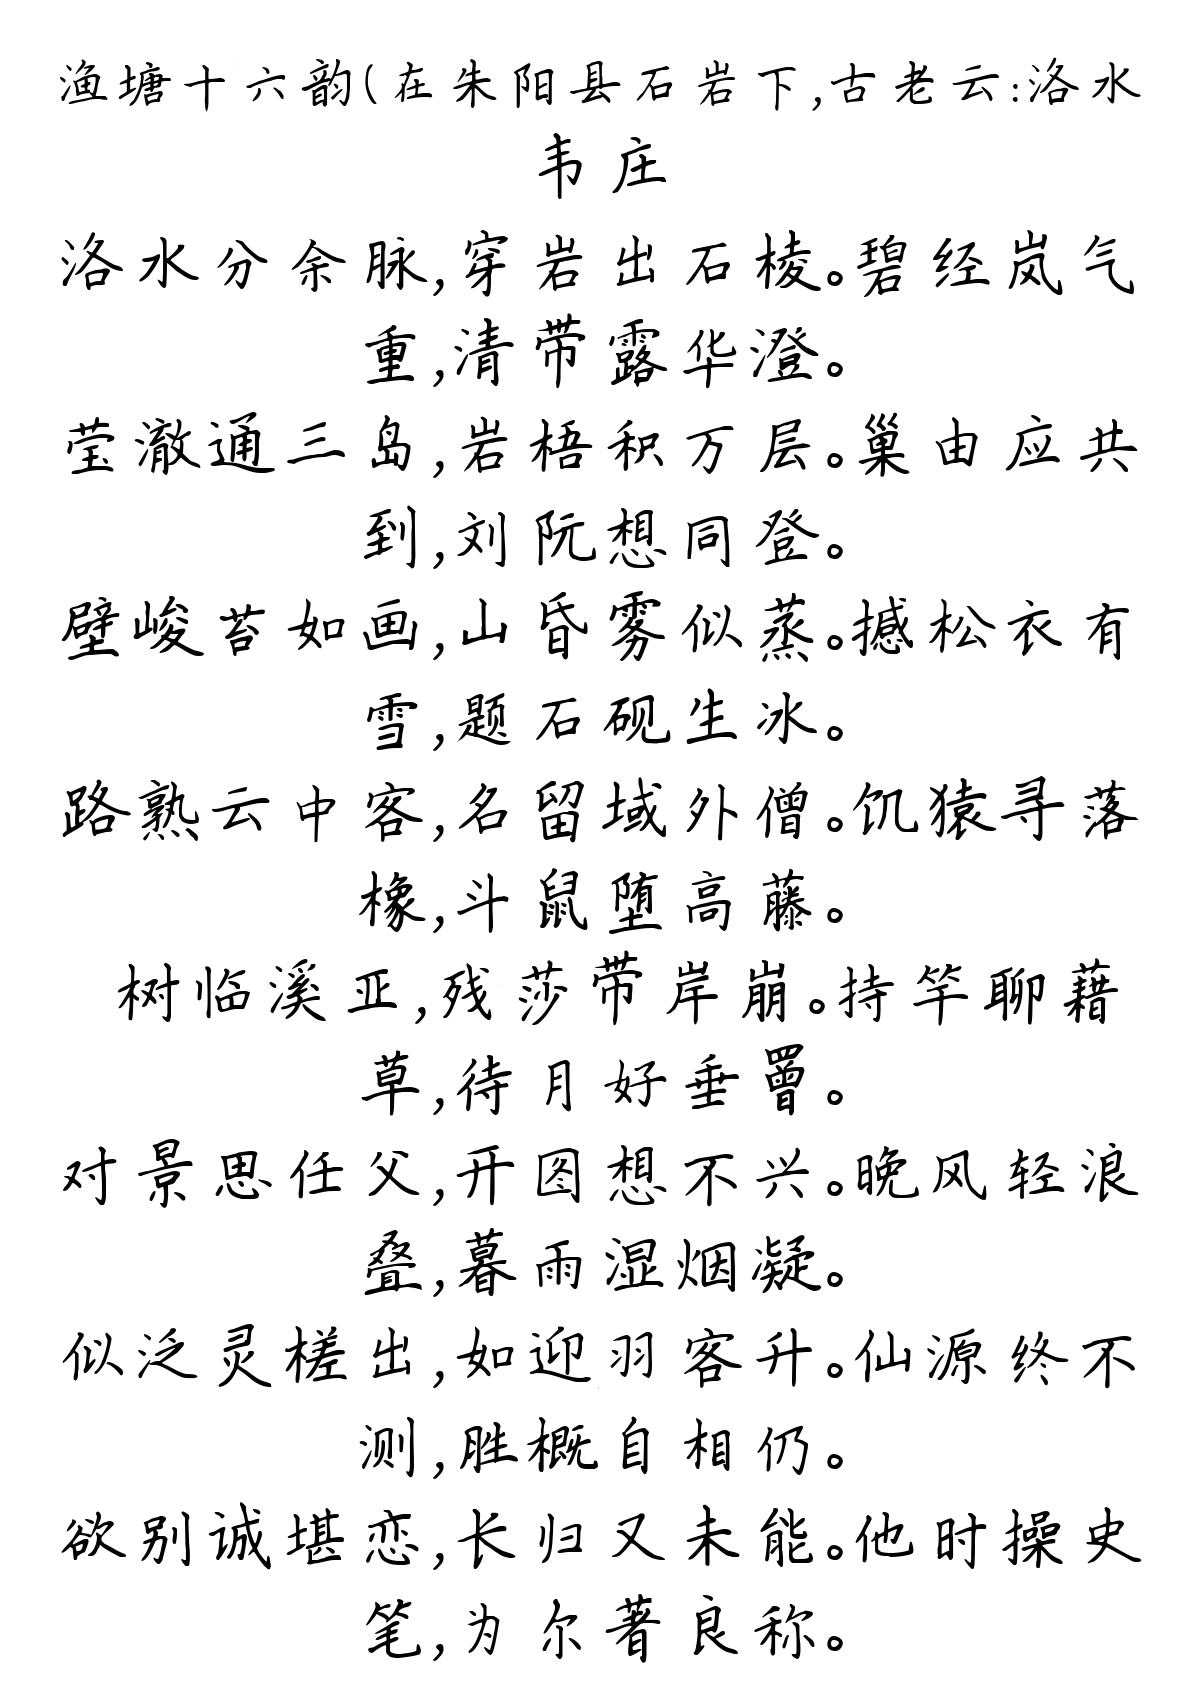 渔塘十六韵(在朱阳县石岩下,古老云:洛水
韦庄
洛水分余脉,穿岩出石棱。碧经岚气
重,清带露华澄。
莹澈通三岛,岩梧积万层。巢由应共
到,刘阮想同登。
壁峻苔如画,山昏雾似蒸。撼松衣有
雪,题石砚生冰。
路熟云中客,名留域外僧。饥猿寻落
橡,斗鼠堕高藤。
树临溪亚,残莎带岸崩。持竿聊藉
草,待月好垂罾。
对景思任父,开图想不兴。晚风轻浪
叠,暮雨湿烟凝。
似泛灵槎出,如迎羽客升。仙源终不
测,胜概自相仍。
欲别诚堪恋,长归又未能。他时操史
笔,为尔著良称。